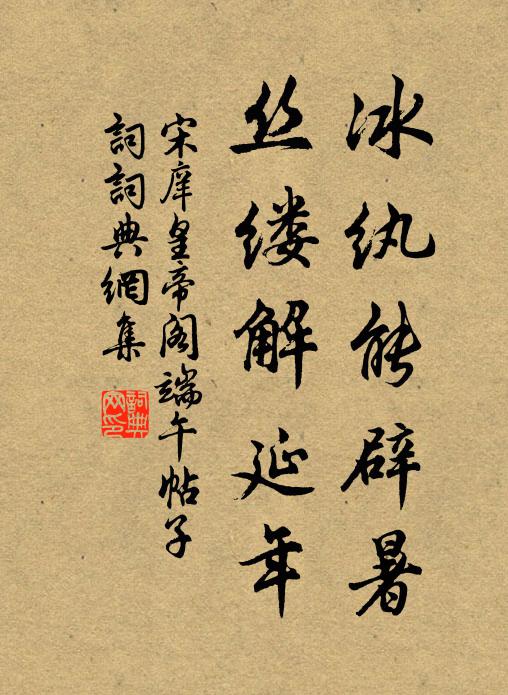 冰纨能辟暑
丝缕解延年
宋庠皇帝阁端午帖子
詞詞典網集
詞典网印